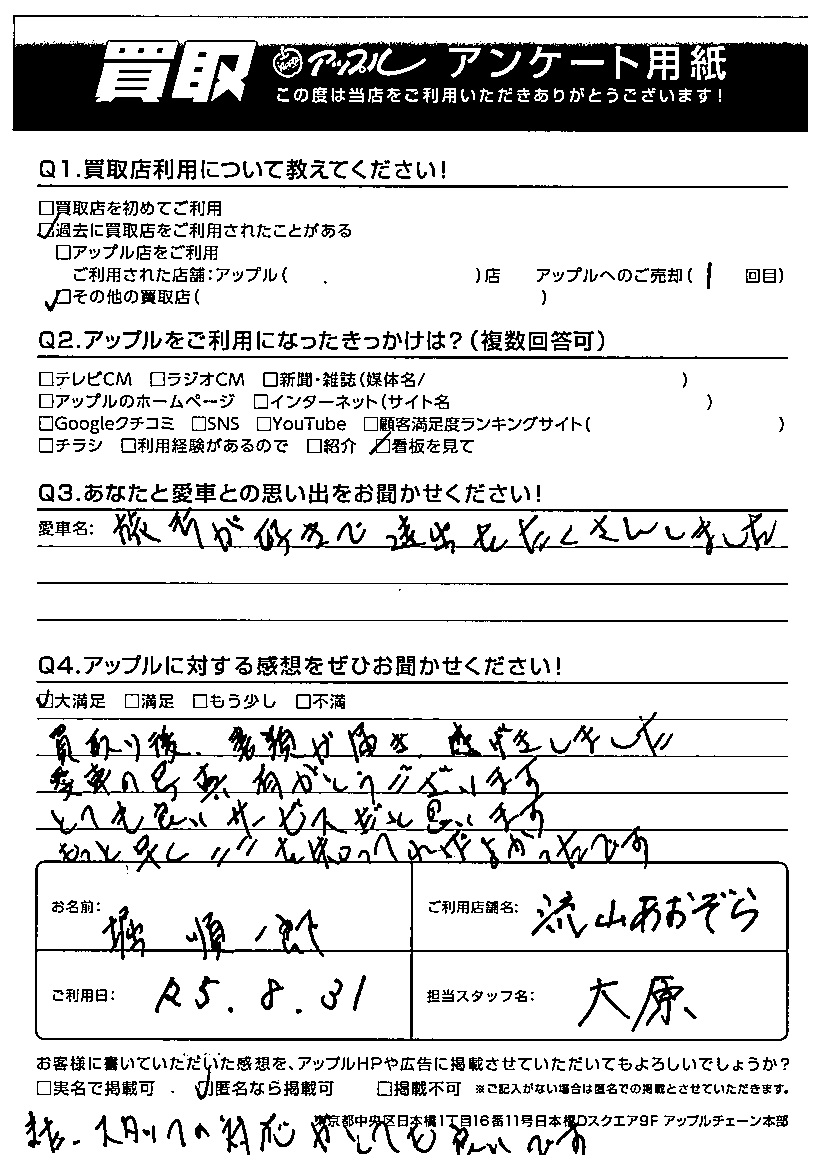 買取 アップル アンケート用紙
この度は当店をご利用いただきありがとうございます!
Q1.買取店利用について教えてください!
□買取店を初めてご利用
☑過去に買取店をご利用されたことがある
□アップル店をご利用
ご利用された店舗:アップル( )店 アップルへのご売却( 1 回目)
☑その他の買取店( )
Q2.アップルをご利用になったきっかけは?(複数回答可)
□テレビCM □ラジオCM □新聞・雑誌(媒体名/ )
□アップルのホームページ □インターネット(サイト名 )
□Googleクチコミ □SNS □YouTube □顧客満足度ランキングサイト( )
□チラシ □利用経験があるので □紹介 ☑看板を見て
Q3.あなたと愛車との思い出をお聞かせください!
愛車名: 旅行が好きで遠出をたくさんしました
Q4.アップルに対する感想をぜひお聞かせください!
☑大満足 □満足 □もう少し □不満
買取り後、書類が届き、しました
愛車の写真ありがとうございます
とても良いサービスだと思います
もっと早くここを知ってればよかったです
お名前: 堀 順一郎 ご利用店舗名: 流山あおぞら
ご利用日: R5.8.31 担当スタッフ名: 大原
お客様に書いていただいた感想を、アップルHPや広告に掲載させていただいてもよろしいでしょうか?
□実名で掲載可 ☑匿名なら掲載可 □掲載不可 ※ご記入がない場合は匿名での掲載とさせていただきます。
東京都中央区日本橋1丁目16番11号日本橋Dスクエア9F アップルチェーン本部
また、スタッフの対応がとても良いです